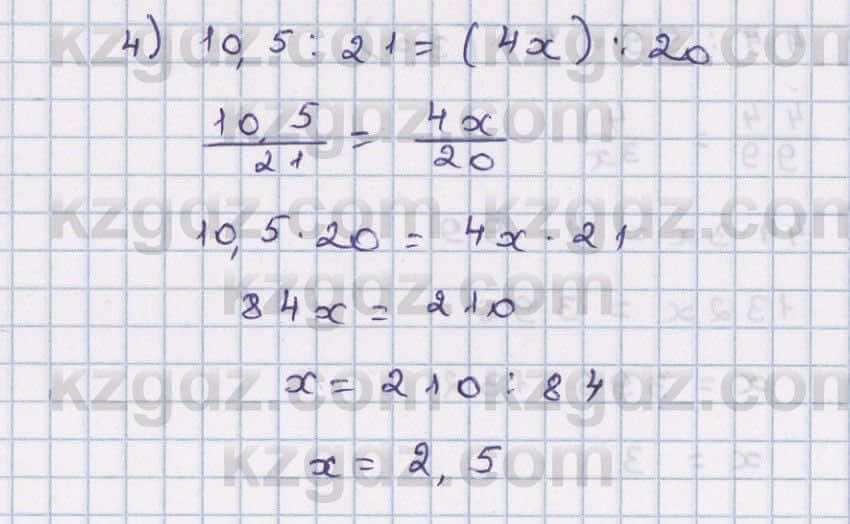 4) 10,5 : 21 = (4x) : 20
10,5/21 = 4x/20
10,5 · 20 = 4x · 21
84x = 210
x = 210 : 84
x = 2,5
kzgdz.com kzgdz.com
kzgdz.com
kzgdz.com kzgdz.com
kzgdz.com
kzgdz.com kzgdz.com
kzgdz.com